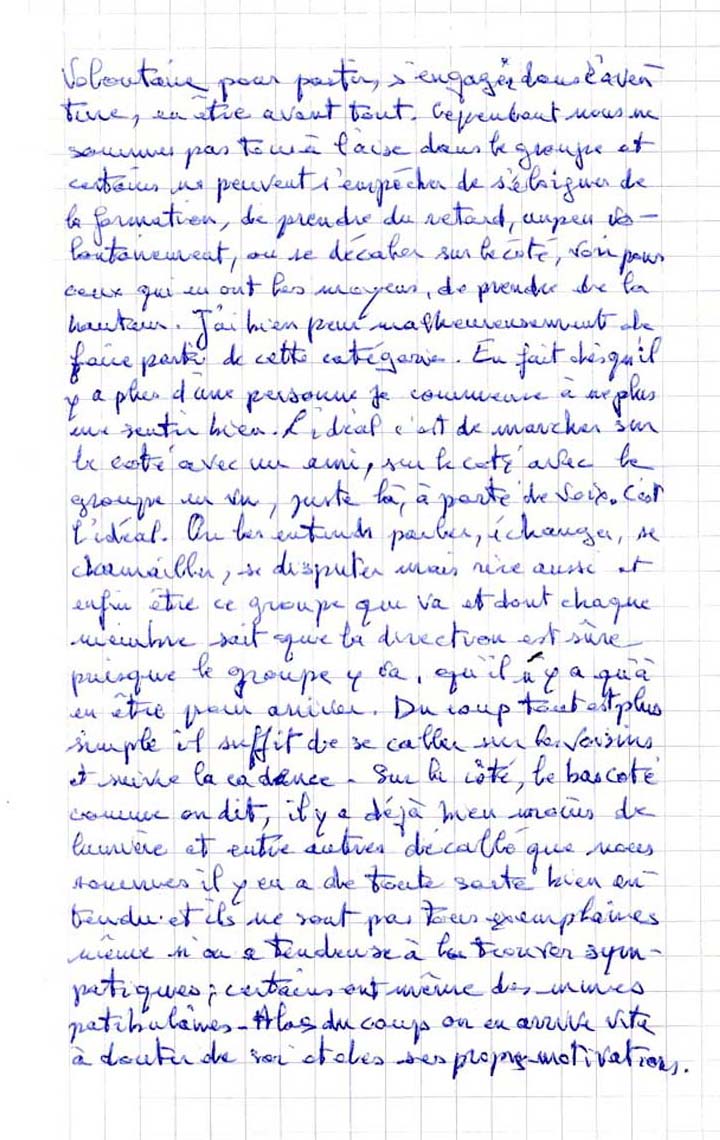 Volontaire pour partir, s'engager dans l'aven
ture, en être avant tout. Cependant nous ne
sommes pas tous à l'aise dans le groupe et
certains ne peuvent s'empêcher de s'éloigner de
la formation, de prendre du retard, un peu vo-
lontairement, ou se décaler sur le côté, voir pour
ceux qui en ont les moyens, de prendre de la
hauteur. J'ai bien peur malheureusement de
faire parti de cette catégorie. En fait dès qu'il
y a plus d'une personne je commence à ne plus
me sentir bien. L'idéal c'est de marcher sur
le coté avec un ami, sur le coté avec le
groupe en vu, juste là, à porté de voix. C'est
l'idéal. On les entends parler, échanger, se
chamailler, se disputer mais rire aussi et
enfin être ce groupe que va et dont chaque
membre sait que la direction est sûre
puisque le groupe y va, qu'il n'y a qu'à
en être pour arriver. Du coup tout est plus
simple il suffit de se caller sur les voisins
et suivre la cadence - Sur le côté, le bas coté
comme on dit, il y a déjà bien moins de
lumière et entre autres décallé que nous
sommes il y en a de toute sorte bien en
tendu et ils ne sont pas tous exemplaires
même si on a tendense à les trouver sym-
patiques ; certains ont même des mines
patibulaires - Alors du coup on en arrive vite
à douter de soi et des ses propre motivations.